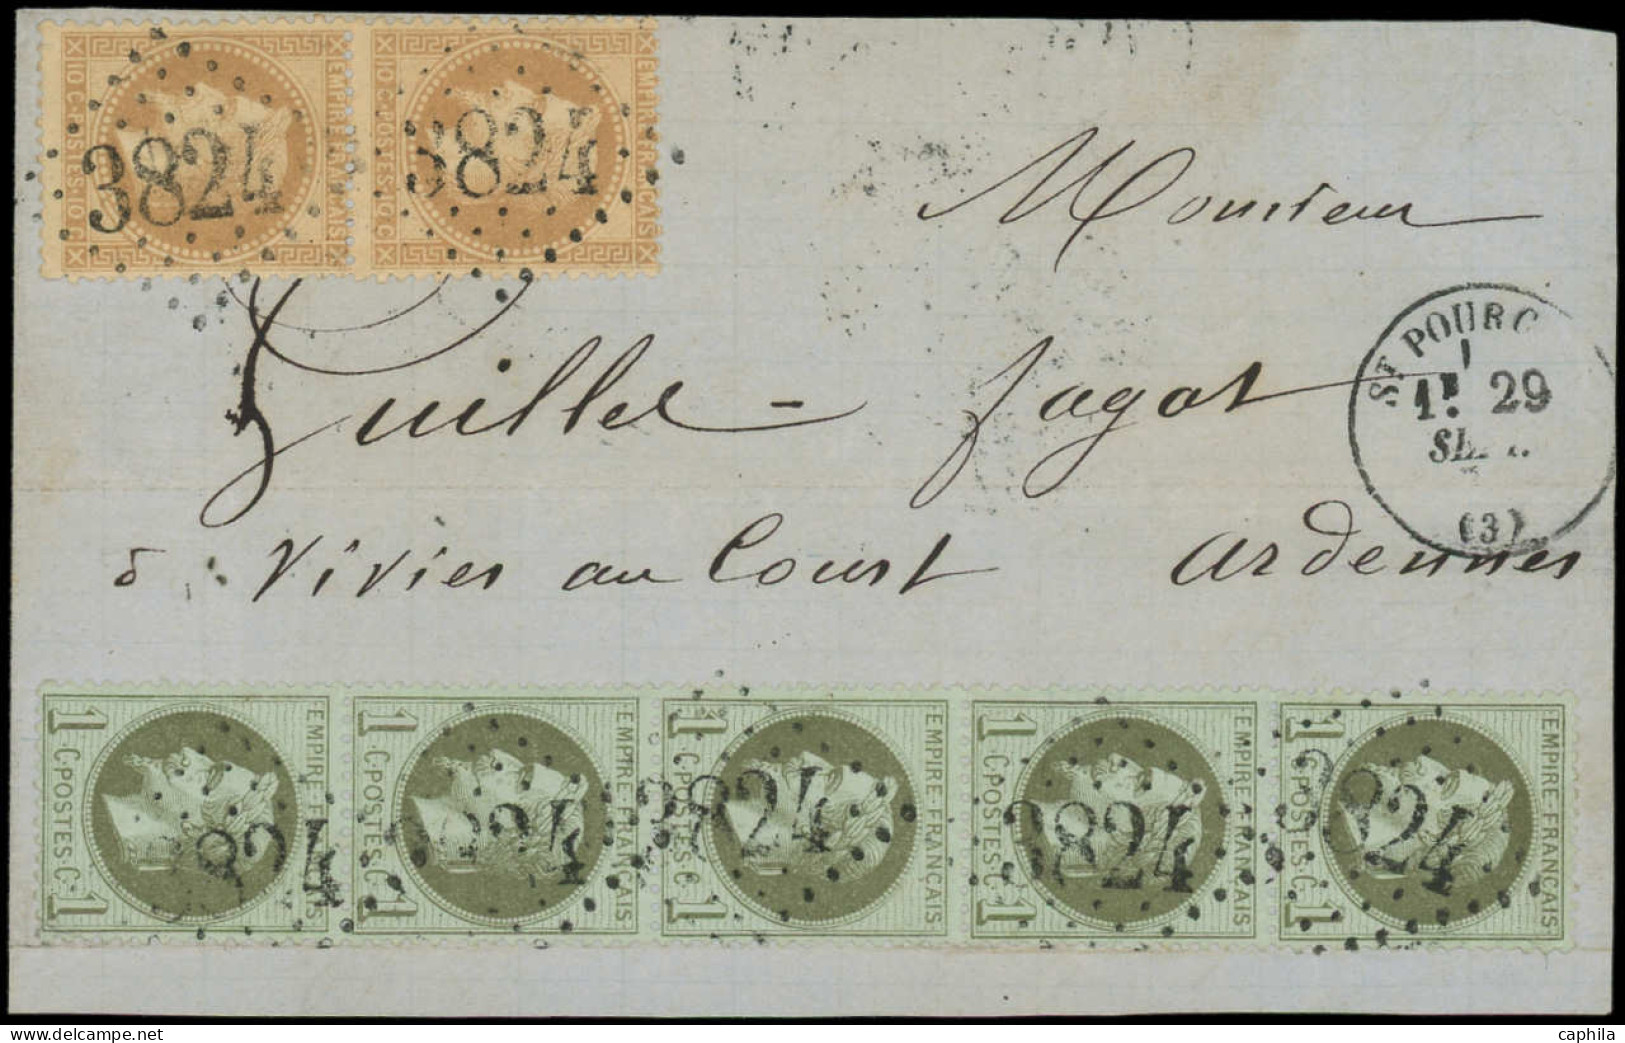 10 C. POSTES 10 C. EMPIRE FRANÇAIS
10 C. POSTES 10 C. EMPIRE FRANÇAIS
3824 3824
Monsieur
Guillet = Jagot
ST POURC
1E 29
SEPT.
(3)
à Vivier au Court Ardennes
1 C. POSTES C. 1 EMPIRE FRANÇAIS
1 C. POSTES C. 1 EMPIRE FRANÇAIS
1 C. POSTES C. 1 EMPIRE FRANÇAIS
1 C. POSTES C. 1 EMPIRE FRANÇAIS
1 C. POSTES C. 1 EMPIRE FRANÇAIS
3824 3824 3824 3824 3824
caphila